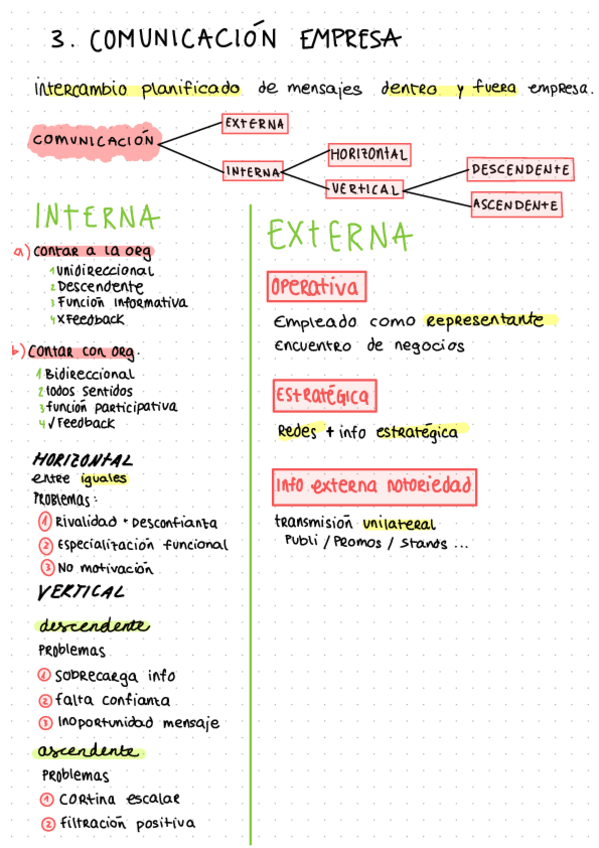 3. COMUNICACIÓN EMPRESA
intercambio planificado de mensajes dentro y fuera empresa.
COMUNICACIÓN
EXTERNA
INTERNA
HORIZONTAL
VERTICAL
DESCENDENTE
ASCENDENTE
INTERNA
a) contar a la org
1 Unidireccional
2 Descendente
3 Función informativa
4 X Feedback
b) contar con org.
1 Bidireccional
2 todos sentidos
3 función participativa
4 √ Feedback
HORIZONTAL
entre iguales
Problemas:
1 Rivalidad + Desconfianza
2 Especialización funcional
3 No motivación
VERTICAL
descendente
Problemas
1 sobrecarga info
2 falta confianza
3 Inoportunidad mensaje
ascendente
Problemas
1 cortina escalar
2 filtración positiva
EXTERNA
Operativa
Empleado como representante
encuentro de negocios
Estratégica
Redes + info estratégica
Info externa notoriedad
transmisión unilateral
Publi / Promos / Stands ...